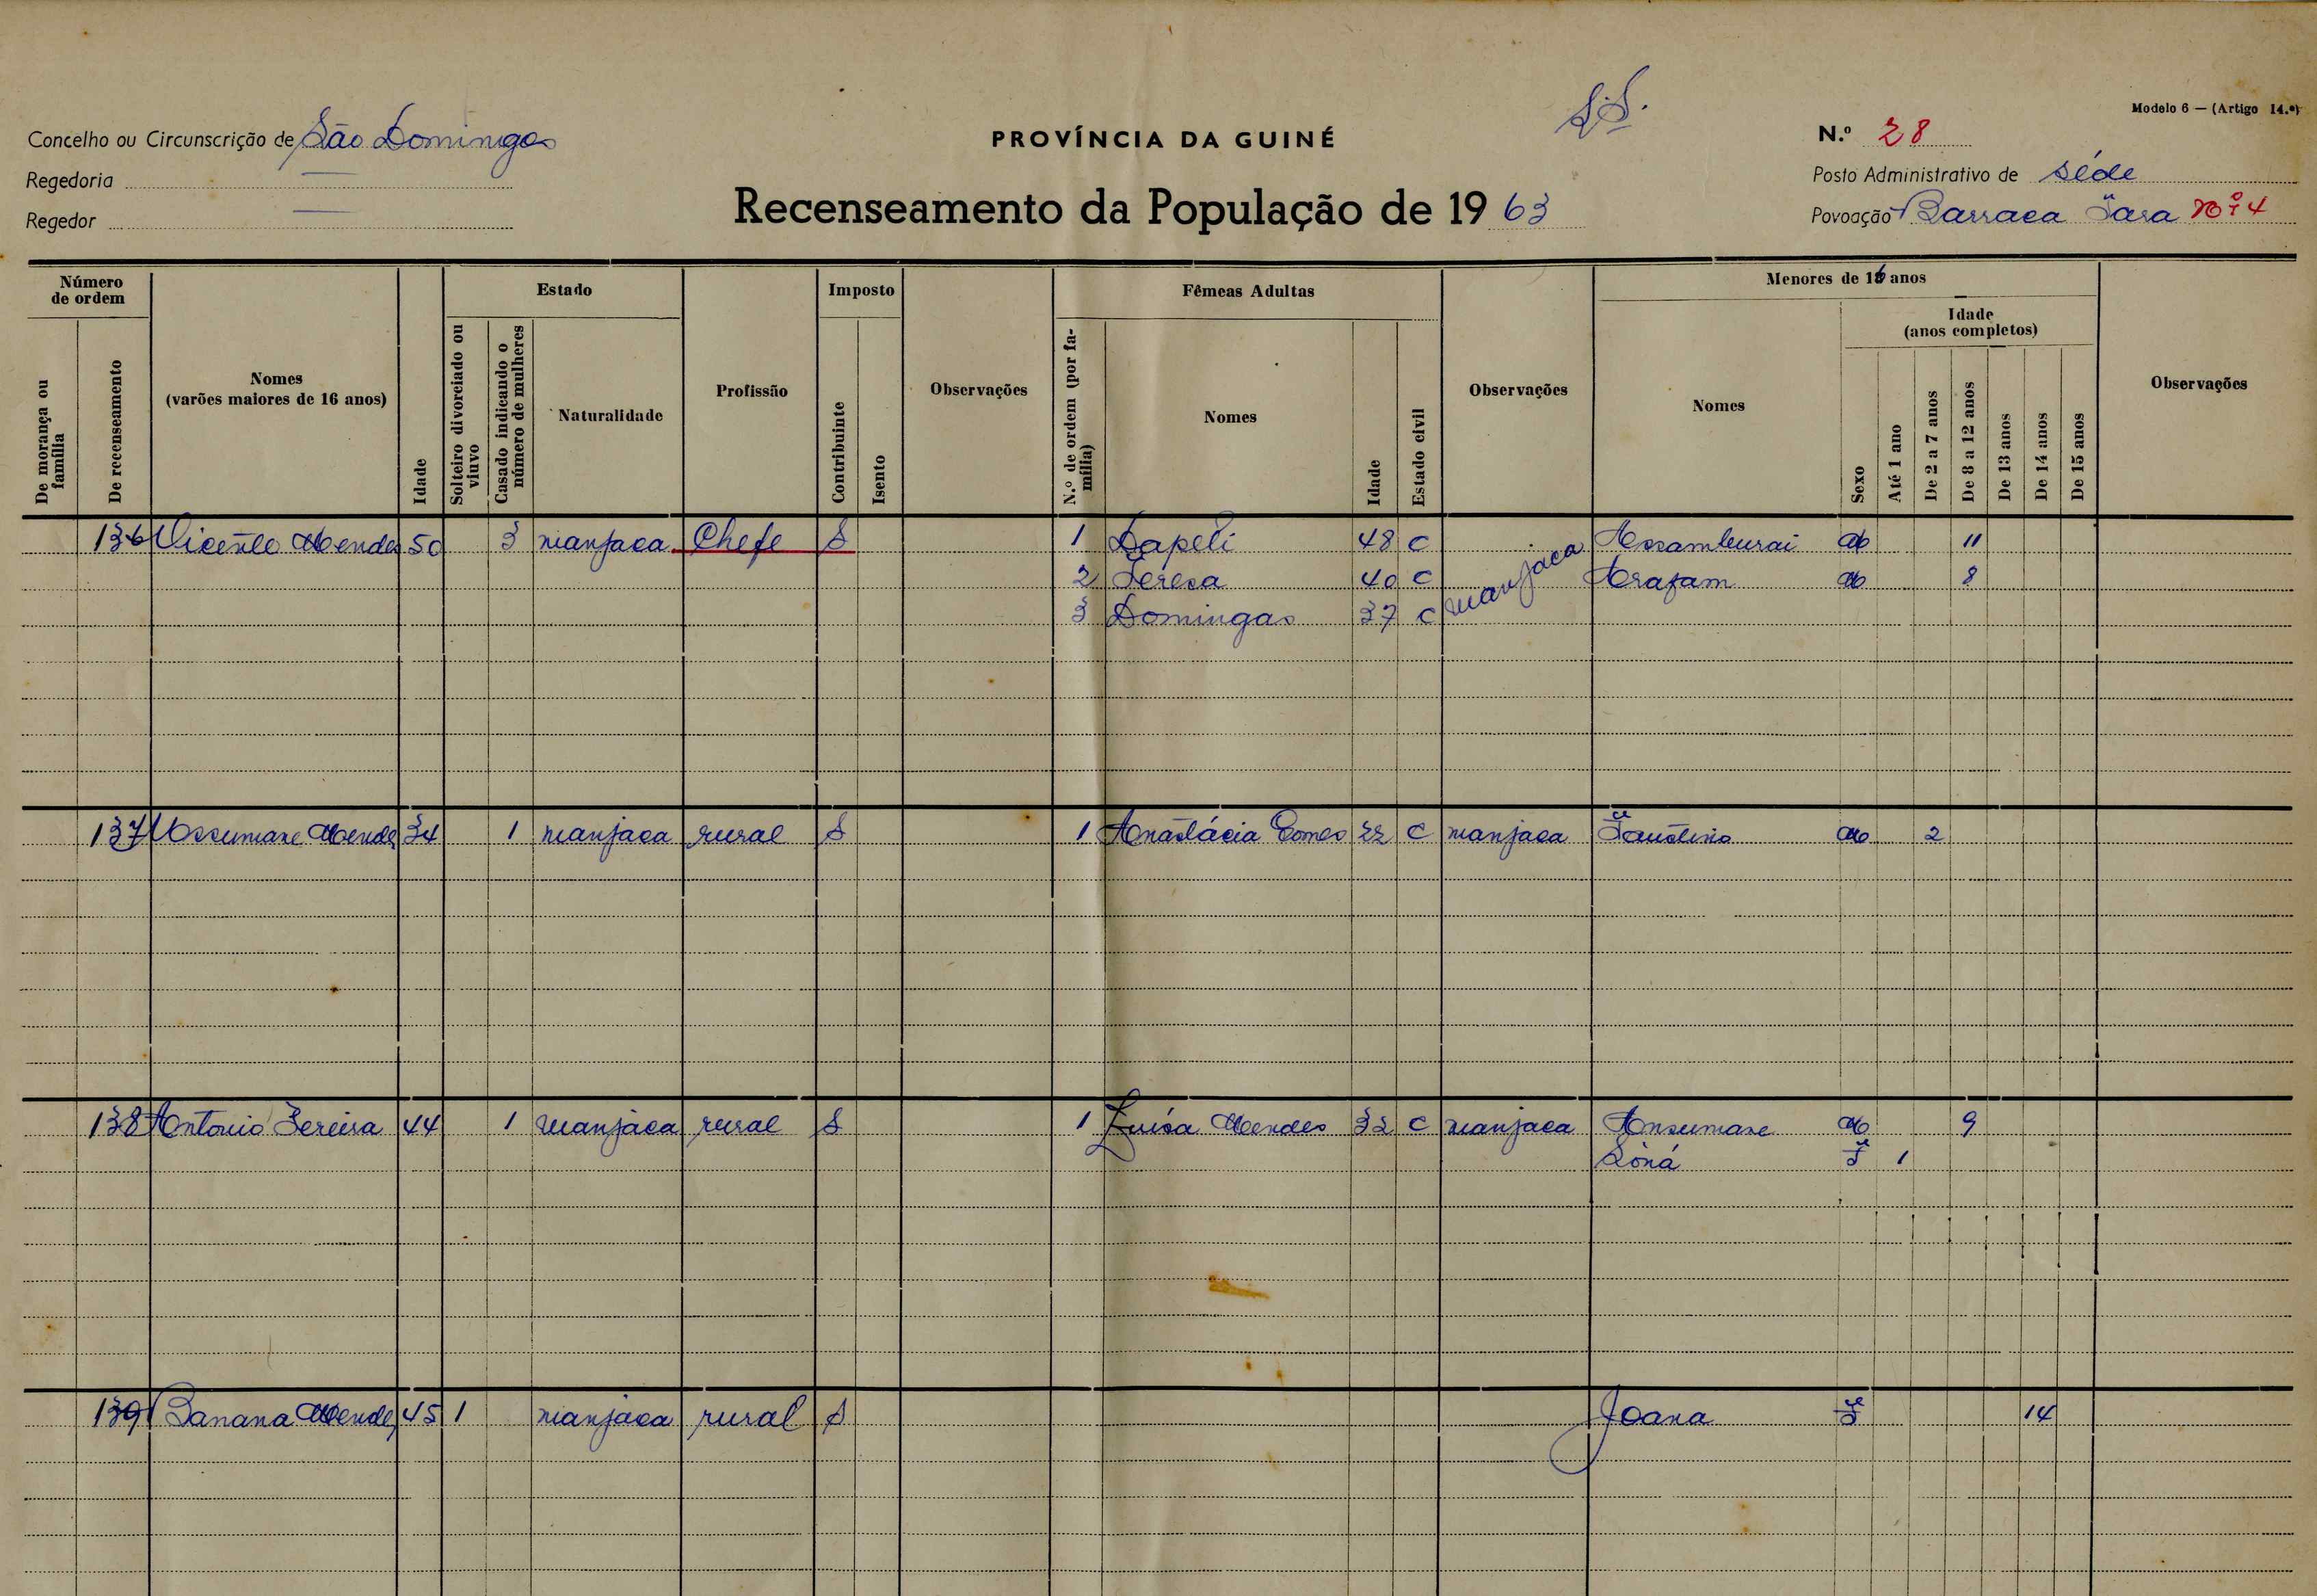 S.S.
Modelo 6 — (Artigo 14.º)
Concelho ou Circunscrição de São Domingos
PROVÍNCIA DA GUINÉ
N.º 28
Regedoria —
Posto Administrativo de Séde
Regedor —
Recenseamento da População de 1963
Povoação Barraca Tara Nº 4
Número de ordem
De morança ou família
De recenseamento
Nomes
(varões maiores de 16 anos)
Idade
Estado
Solteiro divorciado ou viuvo
Casado indicando o número de mulheres
Naturalidade
Profissão
Imposto
Contribuinte
Isento
Observações
Fêmeas Adultas
N.º de ordem (por família)
Nomes
Idade
Estado civil
Observações
Menores de 16 anos
Nomes
Sexo
Idade
(anos completos)
Até 1 ano
De 2 a 7 anos
De 8 a 12 anos
De 13 anos
De 14 anos
De 15 anos
Observações
136 Vicente Mendes 50 3 manjaca Chefe S 1 Dapeli 48 C manjaca Assamburai M 11
2 Teresa 40 C Arafam M 8
3 Domingas 37 C
137 Ussumane Mendes 34 1 manjaca rural S 1 Anastácia Gomes 22 C manjaca Faustino M 2
138 Antonio Pereira 44 1 manjaca rural S 1 Luísa Mendes 32 C manjaca Ansumane M 9
Soná F 1
139 Banana Mendes 45 1 manjaca rural S Joana F 14